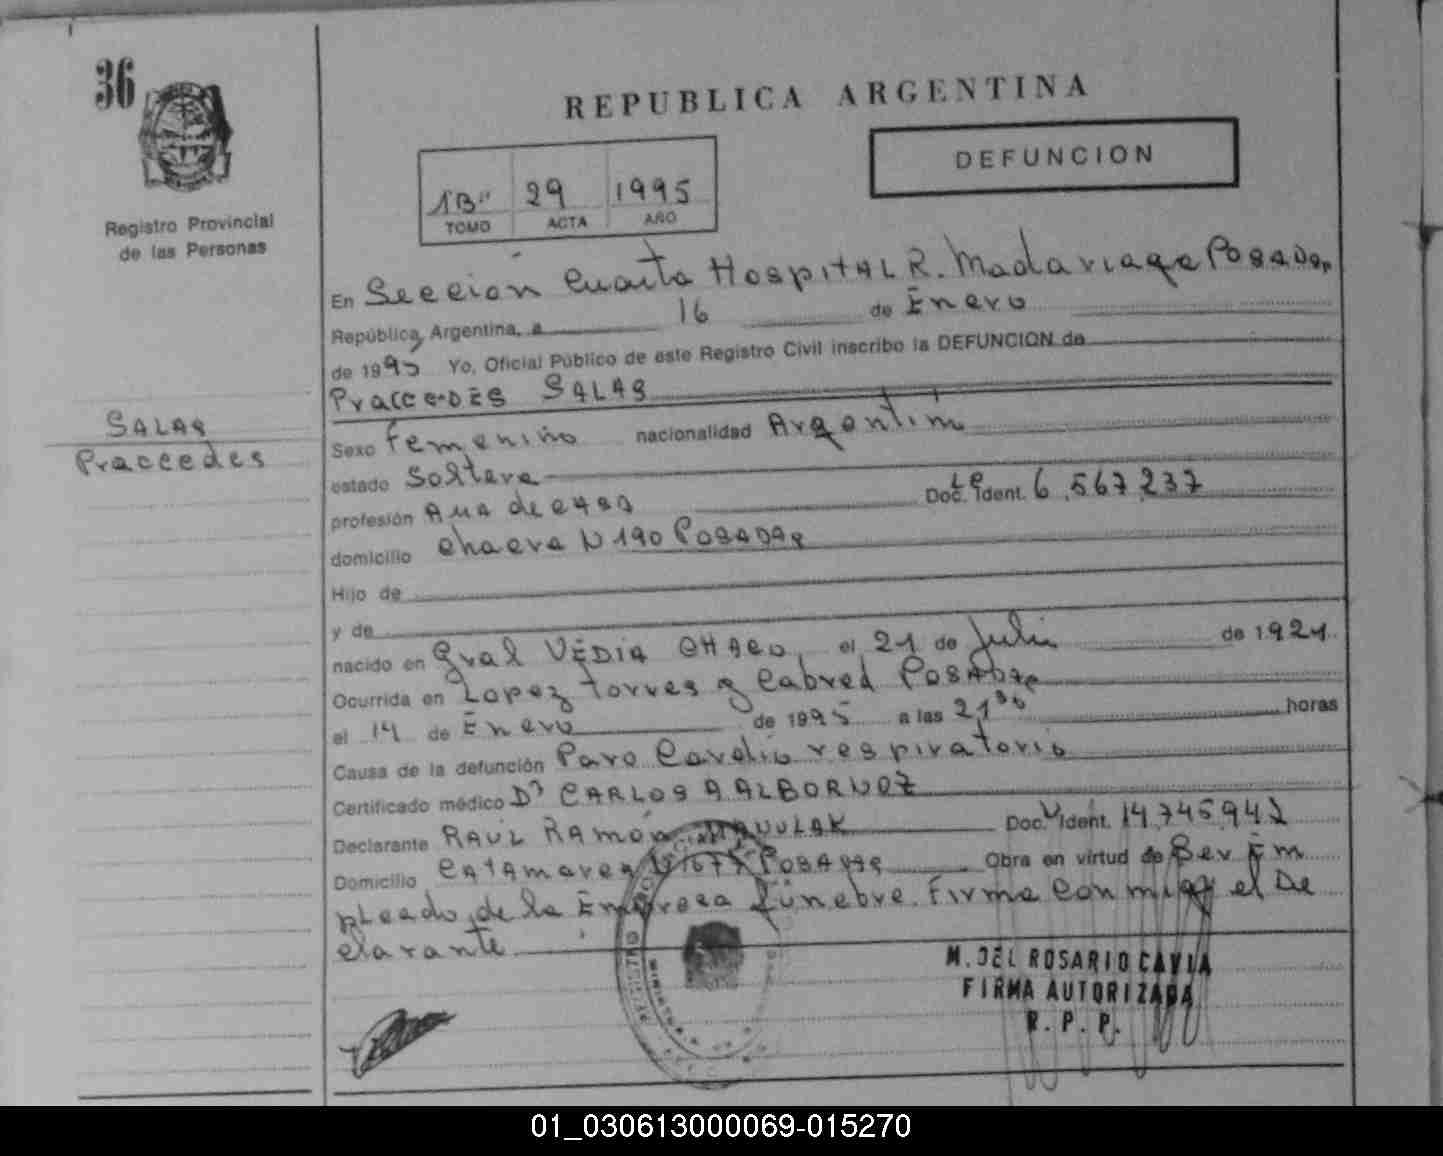 36
REPUBLICA ARGENTINA
DEFUNCION
1B" 29 1995
TOMO ACTA AÑO
Registro Provincial
de las Personas
En Sección Cuarta Hospital R. Madariaga Posadas
República Argentina, a 16 de Enero
de 1995 Yo, Oficial Público de este Registro Civil inscribo la DEFUNCION de
Praccedes SALAS
SALAS
Praccedes
Sexo Femenino nacionalidad Argentina
estado Soltera
profesión Ama de casa Doc. Ident. 6.567.237
domicilio Chacra N 190 Posadas
Hijo de
y de
nacido en Gral VEDIA CHACO el 21 de Julio de 1921
Ocurrida en Lopez Torres y Cabred Posadas
el 14 de Enero de 1995 a las 21 30 horas
Causa de la defunción Paro Cardio respiratorio
Certificado médico Dr CARLOS A ALBORNOZ
Declarante RAUL RAMON Doc. Ident. 14.745.941
Domicilio Catamarca N 1677 Posadas Obra en virtud de Ser Em
pleado de la Empresa Fúnebre. Firma Con migo el De
clarante
M. DEL ROSARIO CAVIA
FIRMA AUTORIZADA
R. P. P.
01_030613000069-015270